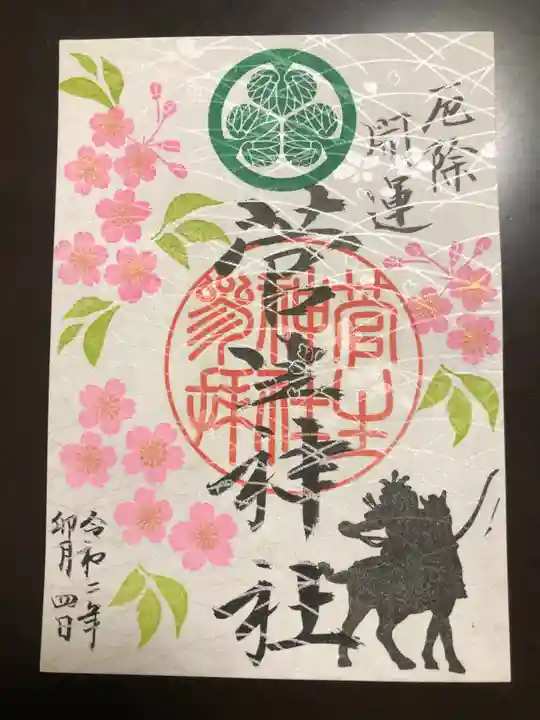 厄除
開運
菅生神社
菅生
神社
参拝
令和二年
卯月四日